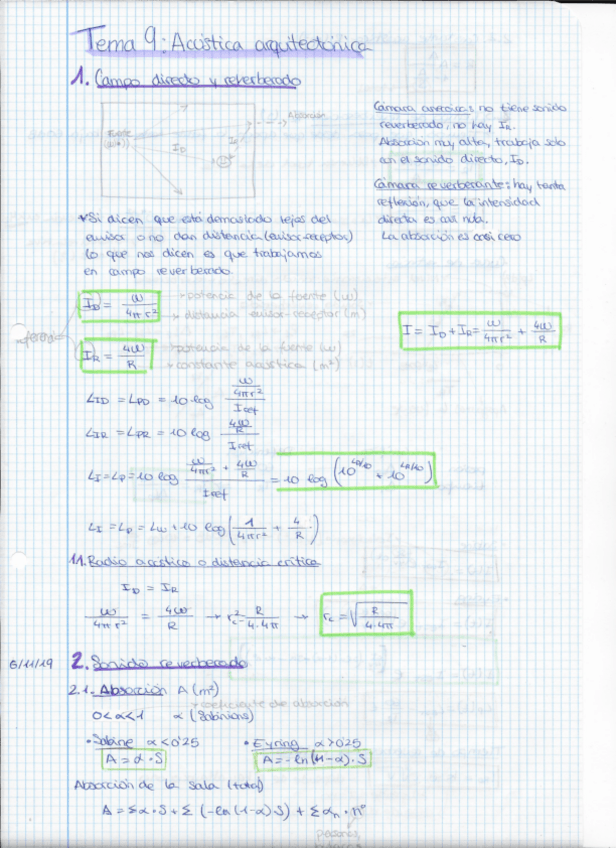 Tema 9: Acústica arquitectónica
1. Campo directo y reverberado
Fuente
I_D
I_R
Absorción
Cámara anecoica: no tiene sonido
reverberado, no hay I_R.
Absorción muy alta, trabaja solo
con el sonido directo, I_D.
Cámara reverberante: hay tanta
reflexión, que la intensidad
directa es casi nula.
La absorción es casi cero
Si dicen que está demasiado lejos del
emisor o no dan distancia (emisor-receptor)
lo que nos dicen es que trabajamos
en campo reverberado.
I_D = W / 4πr² → potencia de la fuente (W)
→ distancia emisor-receptor (m)
I_R = 4W / R → potencia de la fuente (W)
→ constante acústica (m²)
I = I_D + I_R = W / 4πr² + 4W / R
L_ID = L_PD = 10 log (W / 4πr²) / I ref
L_IR = L_PR = 10 log (4W / R) / I ref
L_I = L_P = 10 log (W / 4πr² + 4W / R) / I ref = 10 log
L_I = L_P = L_W + 10 log (1 / 4πr² + 4 / R)
1.1. Radio acústico o distancia crítica
I_D = I_R
W / 4πr² = 4W / R → r_c² = R / 4·4π → r_c = √(R / 4·4π)
6/11/19
2. Sonido reverberado
2.1. Absorción A (m²)
→ coeficiente de absorción
0<α<1 α (Sabinions)
• Sabine α<0'25 • Eyring α>0'25
A = α · S A = -ln(1-α) · S
Absorción de la sala (total)
A = Σα · S + Σ (-ln (1-α) · S) + Σ αn · nº
personas,